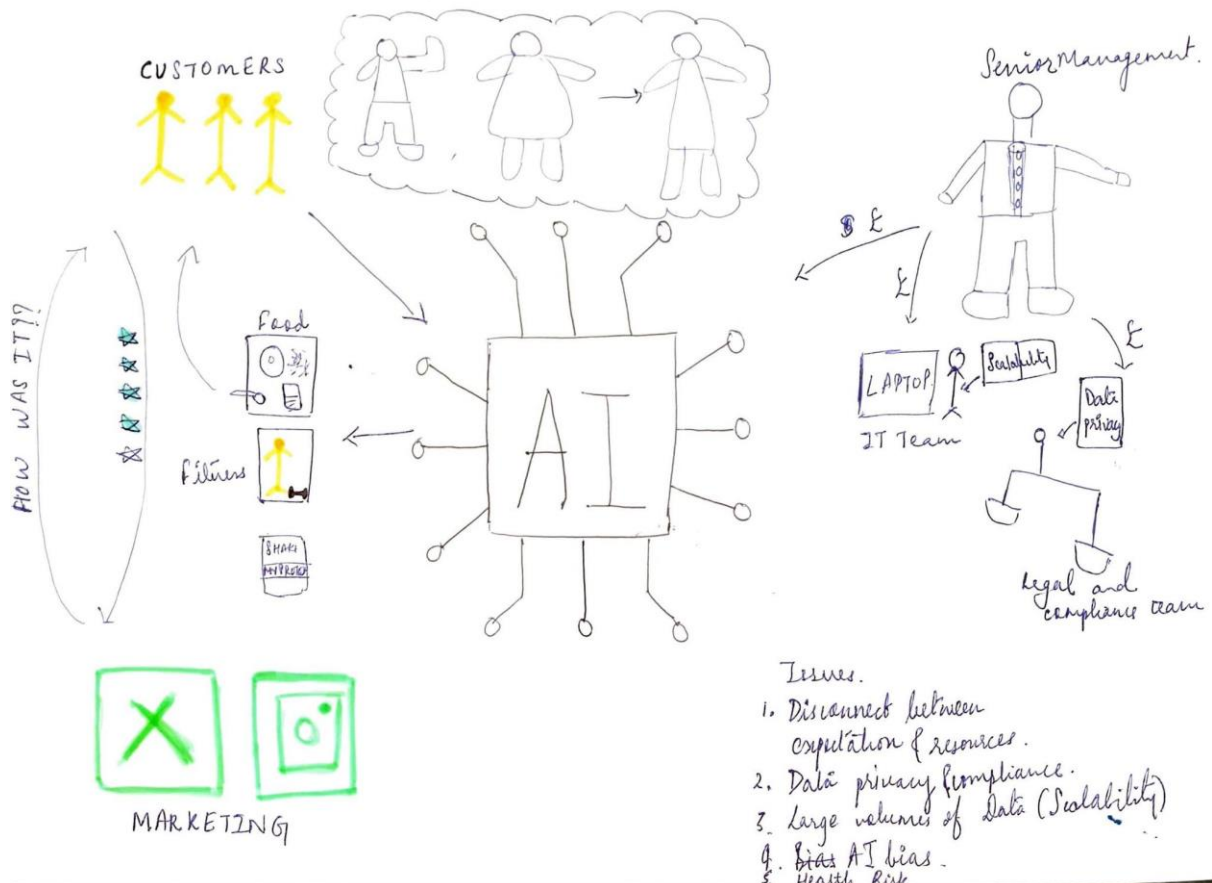 CUSTOMERS
Senior Management.
£
£
£
HOW WAS IT??
Food
Fitness
SHAKE
AI
LAPTOP.
Scalability
IT Team
Data
privacy
Legal and
compliance team
MARKETING
Issues.
1. Disconnect between
expectation & resources.
2. Data privacy & compliance.
3. Large volumes of Data (Scalability)
4. Bias AI bias.
5. Health Risk